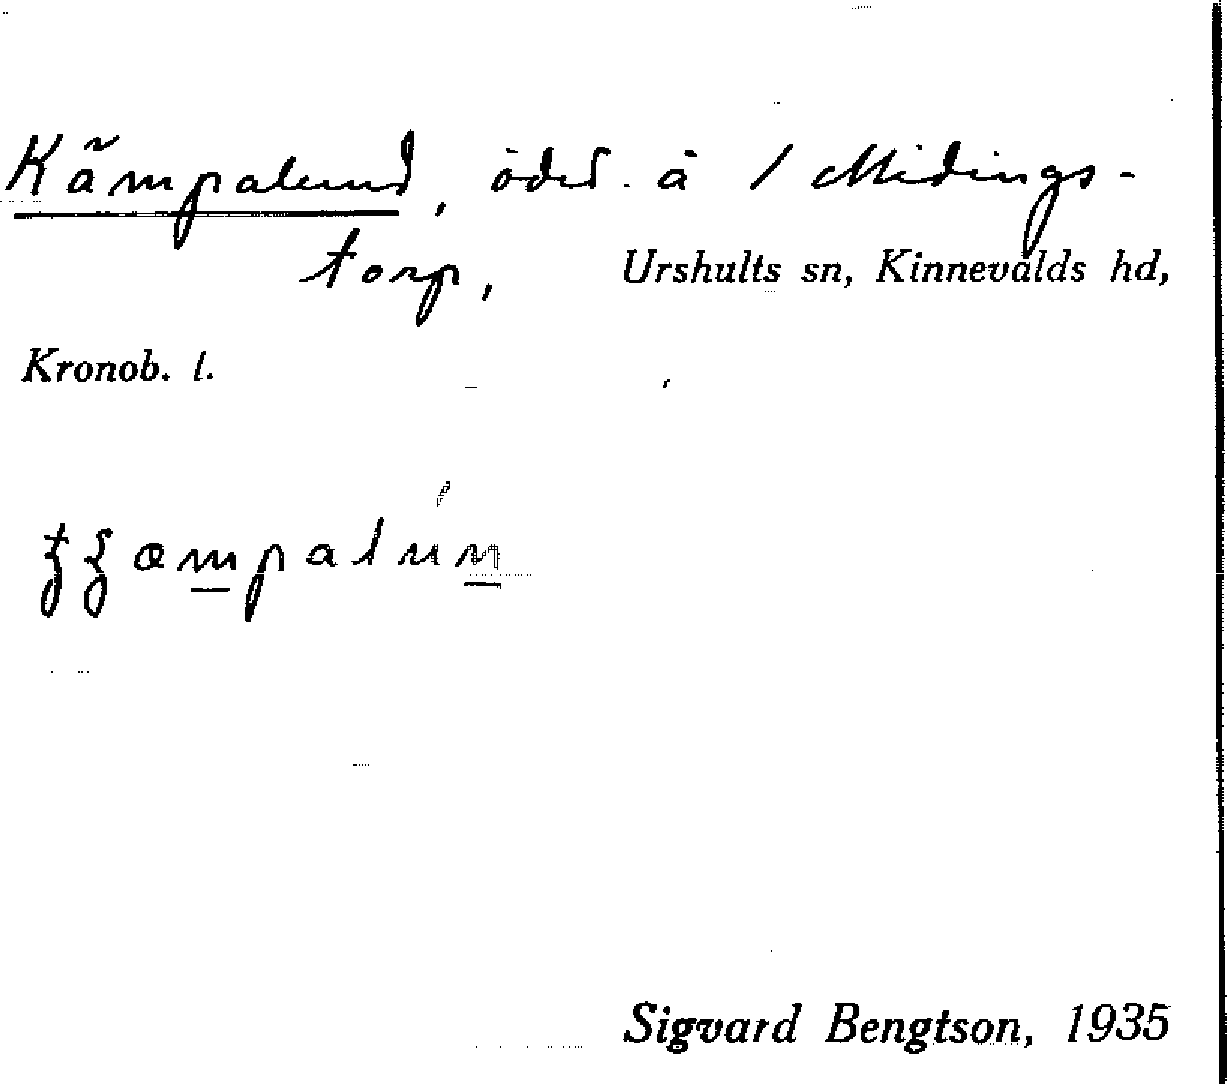 Kämpalund, öded. å 1 Midings-
torp, Urshults sn, Kinnevalds hd,
Kronob. l.
Sigvard Bengtson, 1935